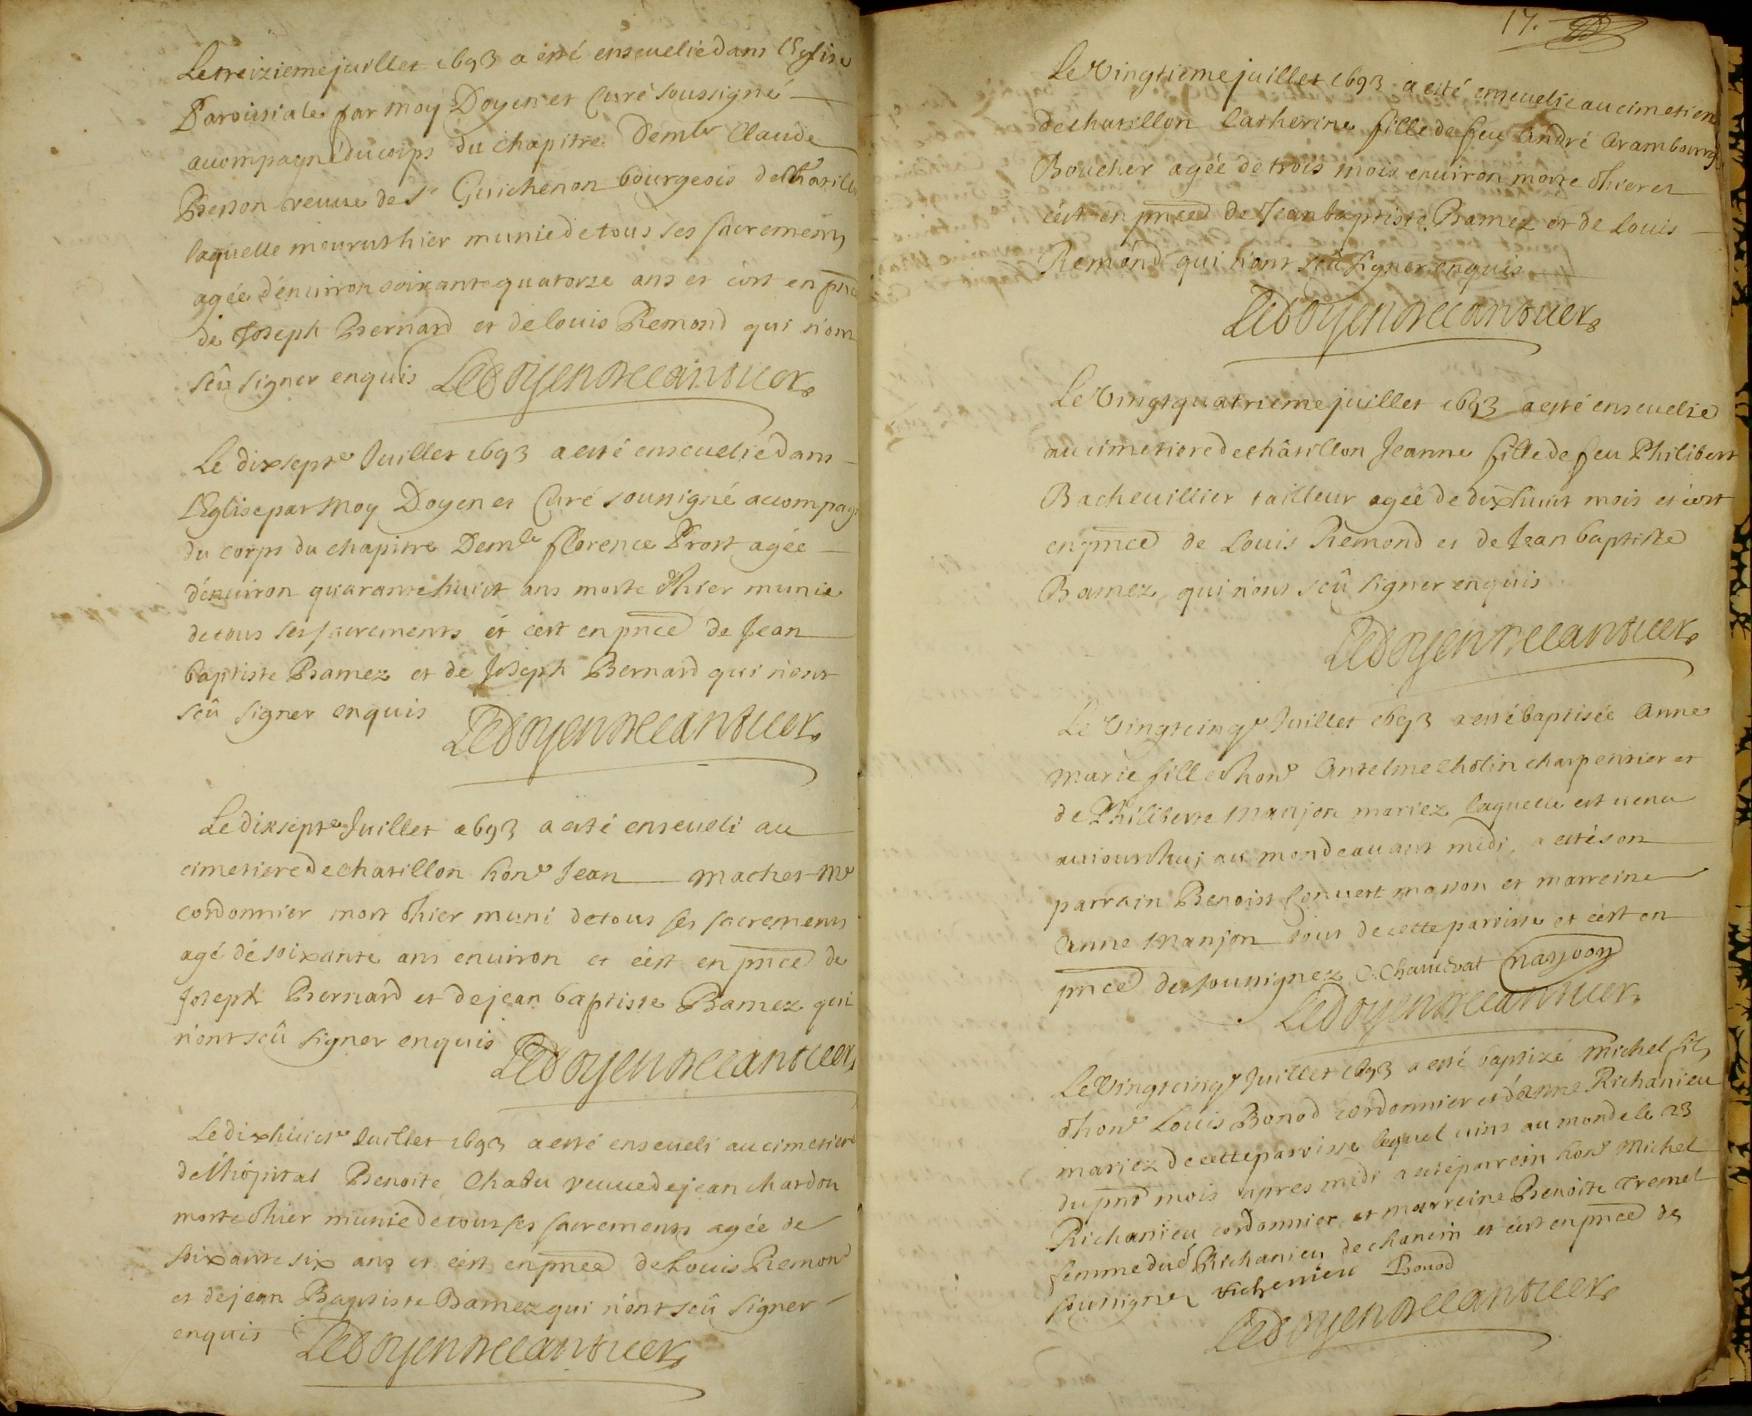 Le treizieme juillet 1693 a esté enseuelie dans l'Eglise
Paroissiale par moy Doyen et Curé soussigné
accompagné du corps du chapitre Demle Claude
Besson veuue de Sr Guichenon bourgeois de Chastillon
laquelle mourut hier munie de tous ses sacrements
agée d'enuiron soixante quatorze ans et c'est en pnce
de Joseph Bernard et de louis Remond qui n'ont
sçû signer enquis Ledoyen
Le dixsepte Juillet 1693 a esté enseuelie dans
l'Eglise par moy Doyen et Curé soussigné accompagné
du corps du chapitre Demle florence Prost agée
d'enuiron quarante huict ans morte d'hier munie
de tous ses sacrements et c'est en pnce de Jean
baptiste Bamez et de Joseph Bernard qui n'ont
sçû signer enquis Ledoyen
Le dixsepte Juillet 1693 a esté enseueli au
cimetiere de chatillon hone Jean Machet Me
cordonnier mort d'hier muni de tous ses sacrements
agé de soixante ans enuiron et c'est en pnce de
Joseph Bernard et de jean baptiste Bamez qui
n'ont sçû signer enquis Ledoyen
Le dixhuicte Juillet 1693 a esté enseueli au cimetiere
de l'hôpital Benoite Chabu veuue de jean chardon
morte d'hier munie de tous ses sacrements agée de
soixante six ans et c'est en pnce de Louis Remond
et de jean Baptiste Bamez qui n'ont sçû signer
enquis Ledoyen
17.
Le Vingtieme juillet 1693 a esté enseuelie au cimetiere
de chatillon Catherine fille de feu André Arambourg
Boucher agée de trois mois enuiron morte d'hier et
c'est en pnce de Jean baptiste Bamez et de Louis
Remond qui n'ont sçû signer enquis
Ledoyen
Le Vingtquatrieme juillet 1693 a esté enseuelie
au cimetiere de châtillon Jeanne fille de feu Philibert
Bacheuillier tailleur agée de dixhuict mois et c'est
en pnce de Louis Remond et de Jean baptiste
Bamez qui n'ont sçû signer enquis
Ledoyen
Le Vingtcinqe Juillet 1693 a esté baptisée Anne
Marie fille d'hone Antelme cholin charpentier et
de Philiberte Manjon mariez laquelle est venue
auiourd'huj au monde auant midi, a esté son
parrain Benoist Conuert masson et marreine
Anne Manjon tous de cette parrisse et c'est en
pnce des soussignez C. Chauduat manjoon
Ledoyen
Le Vingtcinqe Juillet 1693 a esté baptizé Michel fils
d'hone Louis Bonod cordonnier et d'Anne Richanieu
mariez de cette parrisse lequel vint au monde le 23
du pnt mois apres midi a esté parrein hone Michel
Richanieu cordonnier et marreine Benoite Tremel
femme dud Richanieu de chanein et c'est en pnce des
soussignez richenieu Bonod
Ledoyen